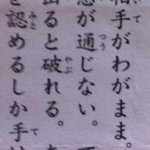 相手がわがまま。
が通じない。
出ると破れる。
を認めるしか手